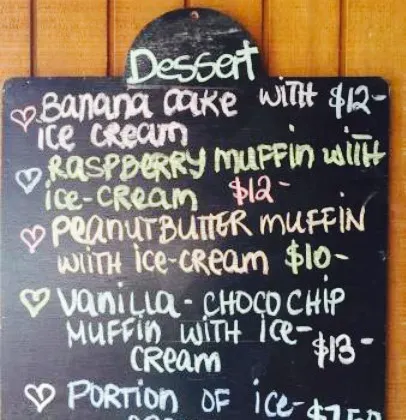 Dessert
Banana Cake with $12-
ice cream
Raspberry muffin wiith
ice-cream $12-
Peanutbutter muffin
wiith ice-cream $10-
Vanilla - choco chip
muffin with ice-
cream $13-
Portion of ice-
$7.50